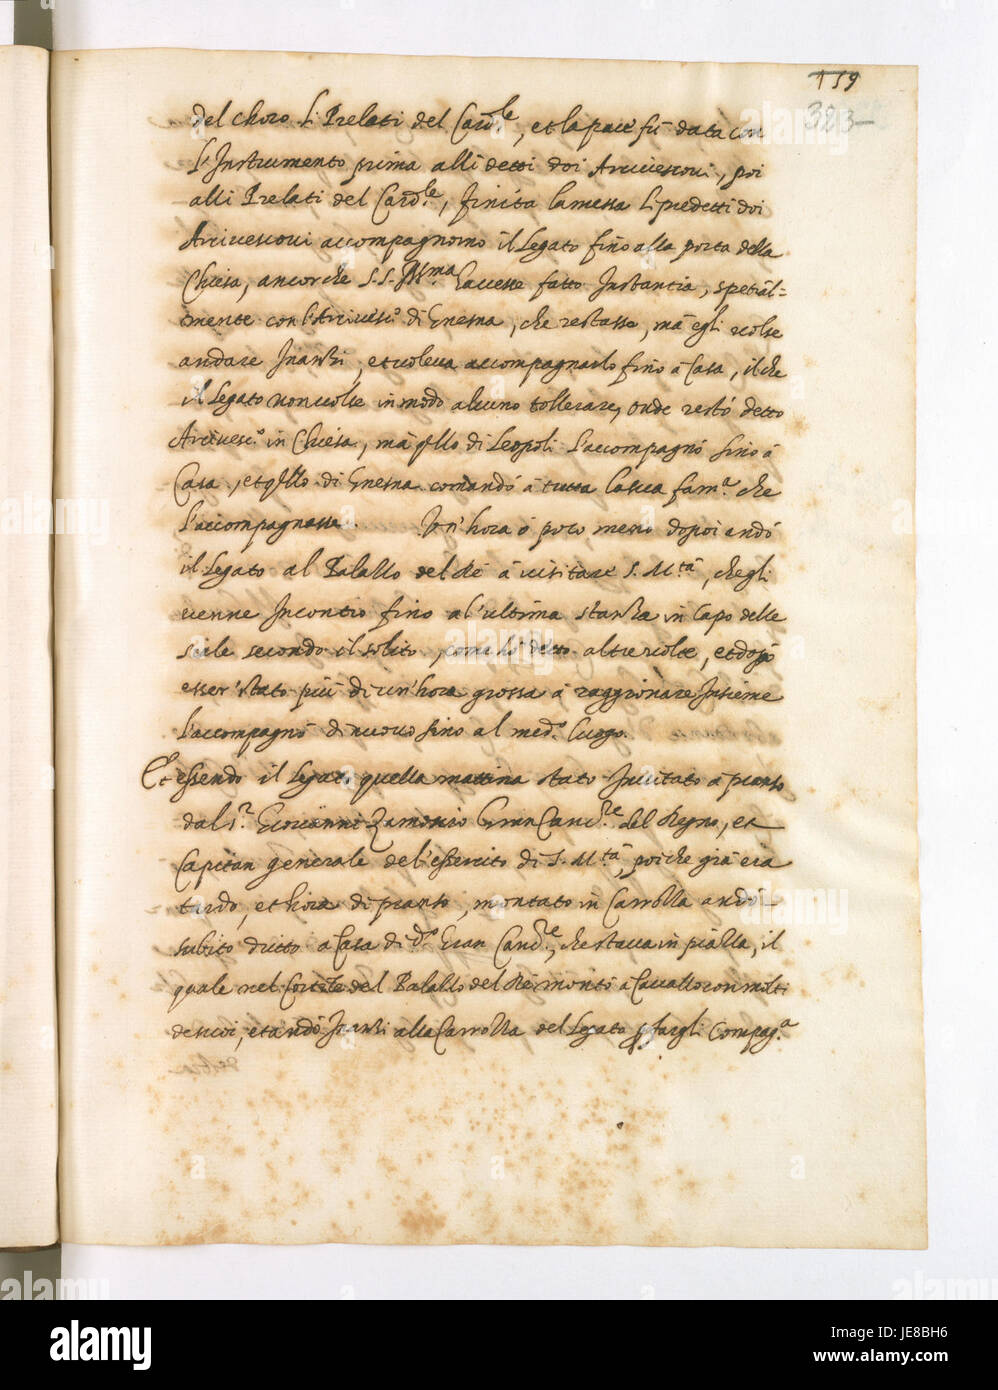 159
383
del choro li Prelati del Card.le, et la pace fù data con
l'Instrumento prima alli detti doi Arcivescovi, poi
alli Prelati del Card.le, finita la messa li predetti doi
Arcivescovi accompagnorno il Legato fino alla porta della
Chiesa, ancorche S. S. Ill.ma havesse fatto Instantia, spetial=
mente con l'Arcivesc.o di Gnesna, che restasse, mà egli volse
andare Inanzi, et voleva accompagnarlo fino à Casa, il che
il Legato non volse in modo alcuno tollerare, onde restò detto
Arcivesc.o in Chiesa, mà qllo di Leopoli l'accompagnò fino à
Casa, et qllo di Gnesna comandò à tutta la sua fam.a che
l'accompagnasse. Un'hora ò poco meno dopoi andò
il Legato al Palazzo del Rè à visitare S. M.tà, che gli
venne Incontro fino al'ultima stanza in capo delle
scale secondo il solito, come hò detto altre volte, et dopo
esser stato più di un'hora grossa à raggionare Insieme
l'accompagnò di nuovo fino al med.o luogo.
Et essendo il Legato quella mattina stato Invitato à pranso
dal S.r Giovanni Zamoisio Gran Canc.re del Regno, et
Capitan generale del'essercito di S. M.tà, poiche già era
tardo, et hora di pranso, montato in Carrozza andò
subito dritto à Casa di d.o Gran Canc.re, che stava in piazza, il
quale nel Cortile del Palazzo del Rè montò à Cavallo con molti
de suoi, et andò Inanzi alla Carrozza del Legato p fargli Compag.a
alamy
Image ID: JE8BH6
www.alamy.com